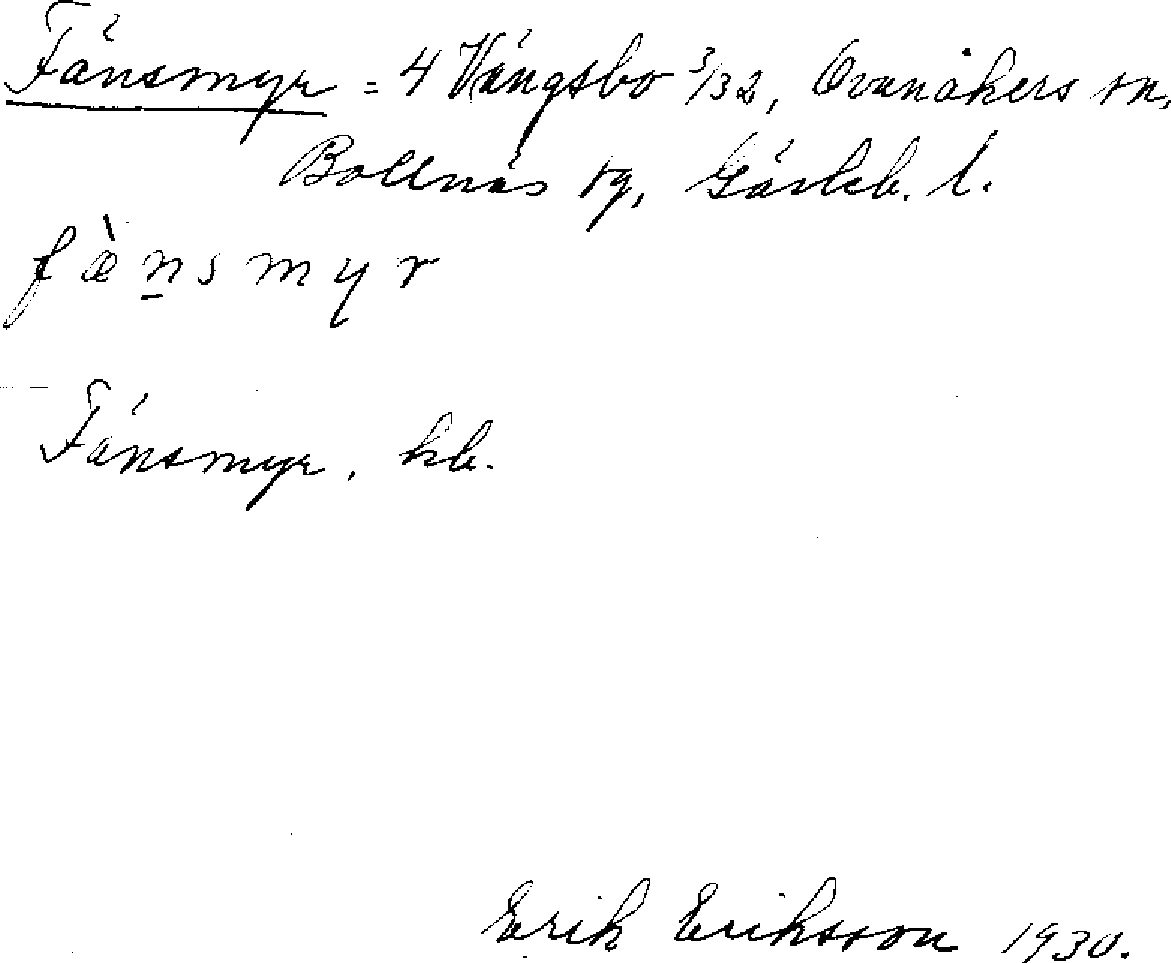 Fänsmyr = 4 Vängsbo 3/32, Ovanåkers sn,
Bollnäs tg, Gävleb. l.
fæ̀n̠smyr
Fänsmyr, hb.
Erik Eriksson 1930.